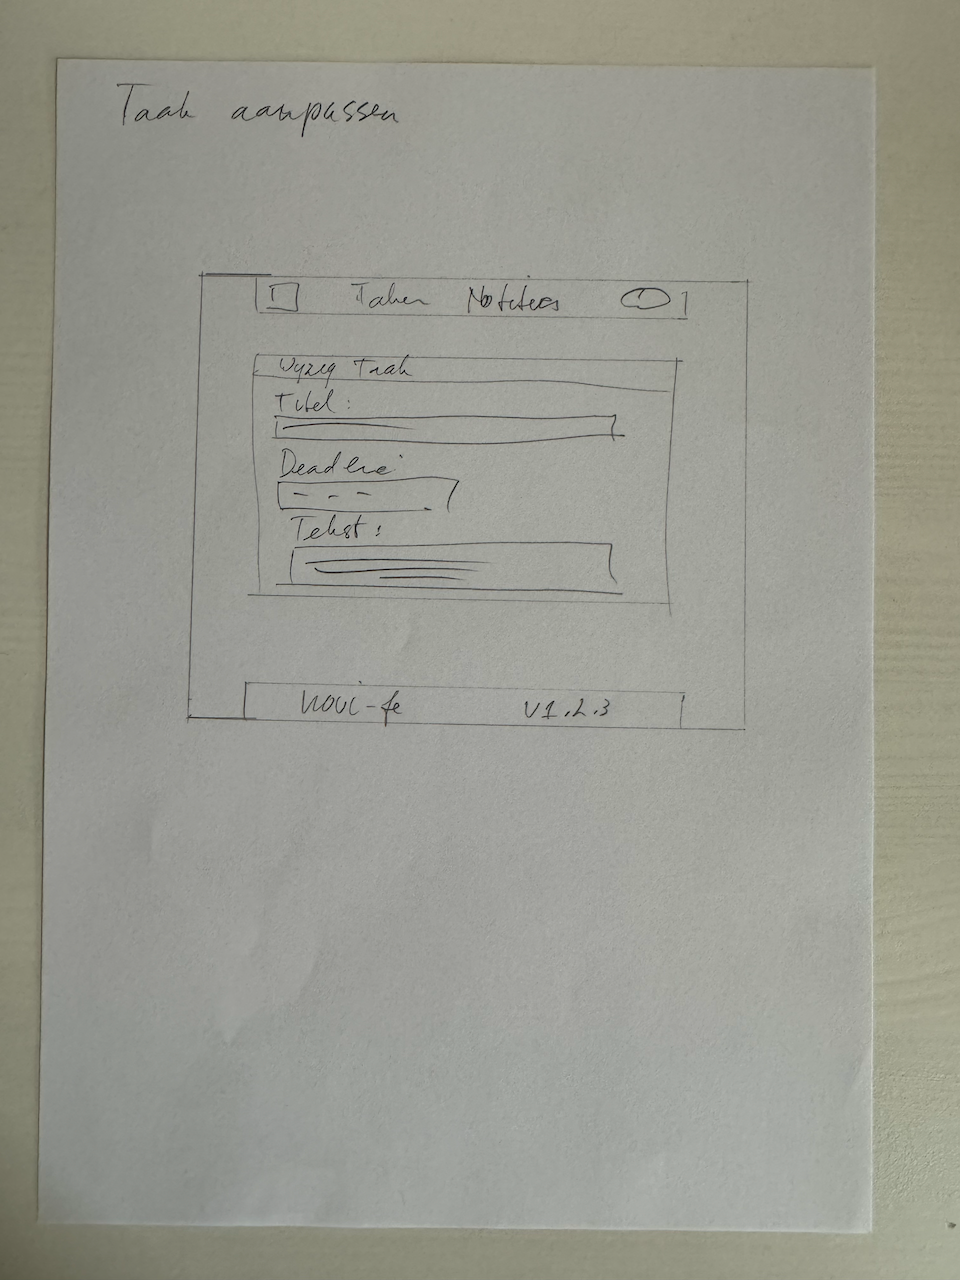 Taak aanpassen
Taken Notities
Wijzig Taak
Titel:
Deadline
Tekst:
novi-fe v1.2.3